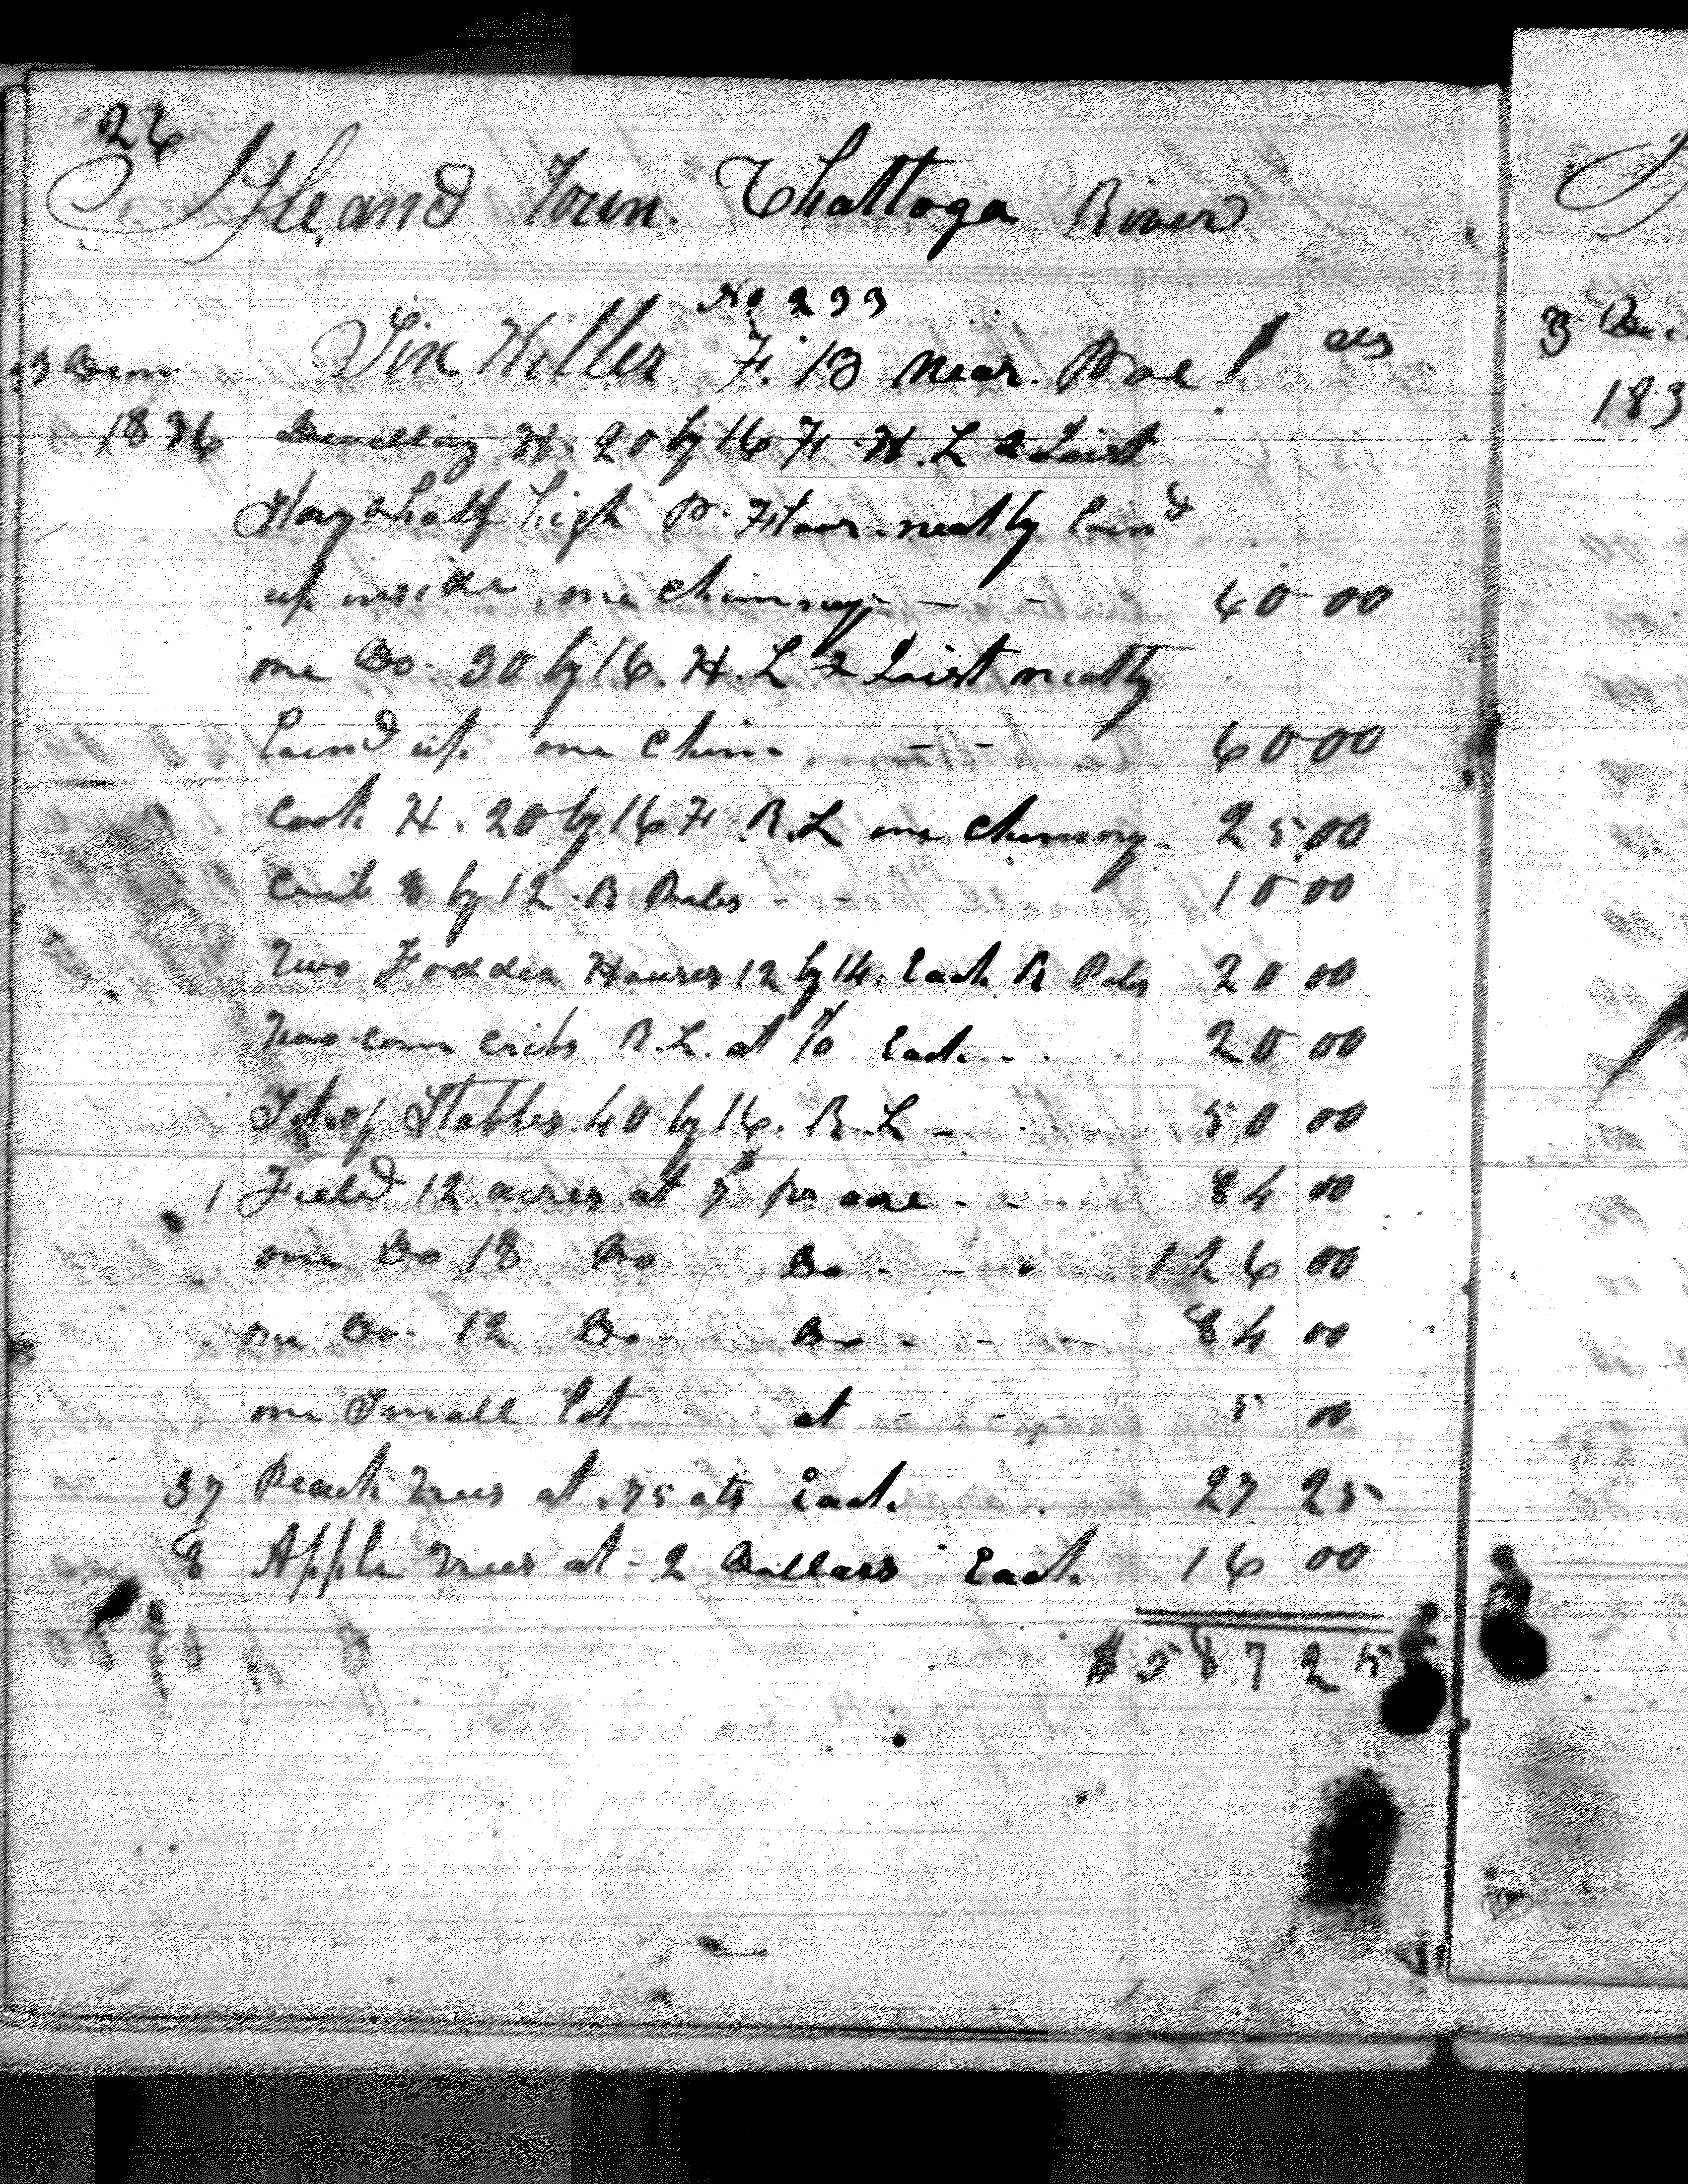 26
Island Town. Chattoga River
No 233
Six Killer F. 13 near. Poe $ cts
Decm
1836 Dwelling H. 20 by 16 Ft. H. L & Joist
Story & half high P. Floor. neatly loind
up inside, one chimney - - 60 00
one Do. 30 by 16. H. L & Joist neatly
loind up one Chim. - - 60 00
Cook H. 20 by 16 Ft R. L one Chimney - 25 00
Crib 8 by 12 . R Poles - - 10 00
Two Fodder Houses 12 by 14. Each R Poles 20 00
Two corn cribs R. L. at $10 Each - . 20 00
Set of Stables. 40 by 16. R. L - . . . 50 00
1 Field 12 acres at $7 pr. acre - - 84 00
one Do 18 Do Do - - - 126 00
one Do. 12 Do. Do - - - 84 00
one Small Lot at - - - - 5 00
37 Peach Trees at . 75 cts Each. 27 25
8 Apple Trees at - 2 Dollars Each 16 00
$ 587 25
3
183